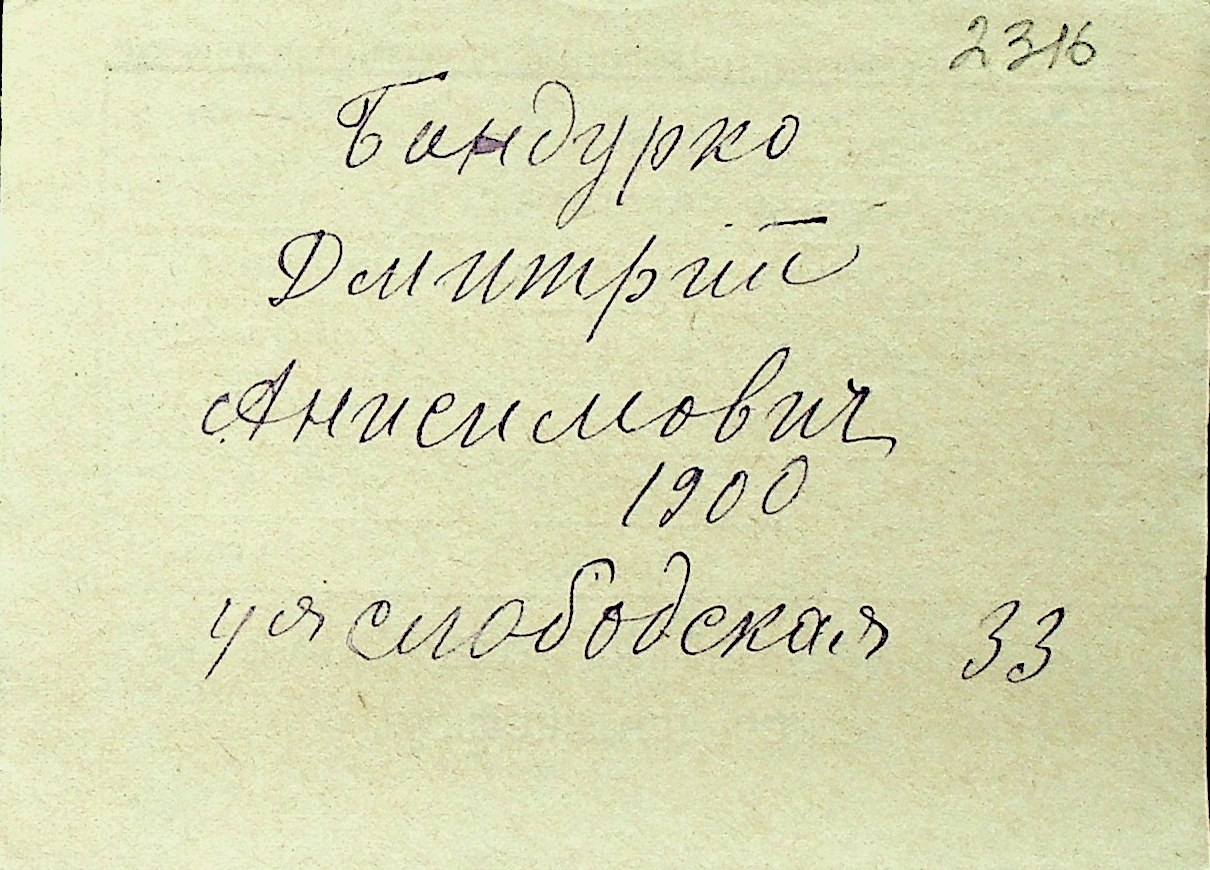 2316
Бандурко
Дмитрий
Анисимович
1900
4я слободская 33